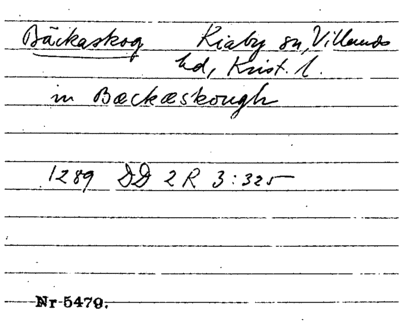 Bäckaskog Kiaby sn, Villands
hd, Krist. l.
in Bæckæskough
1289 DD 2 R 3:325
Nr 5479.